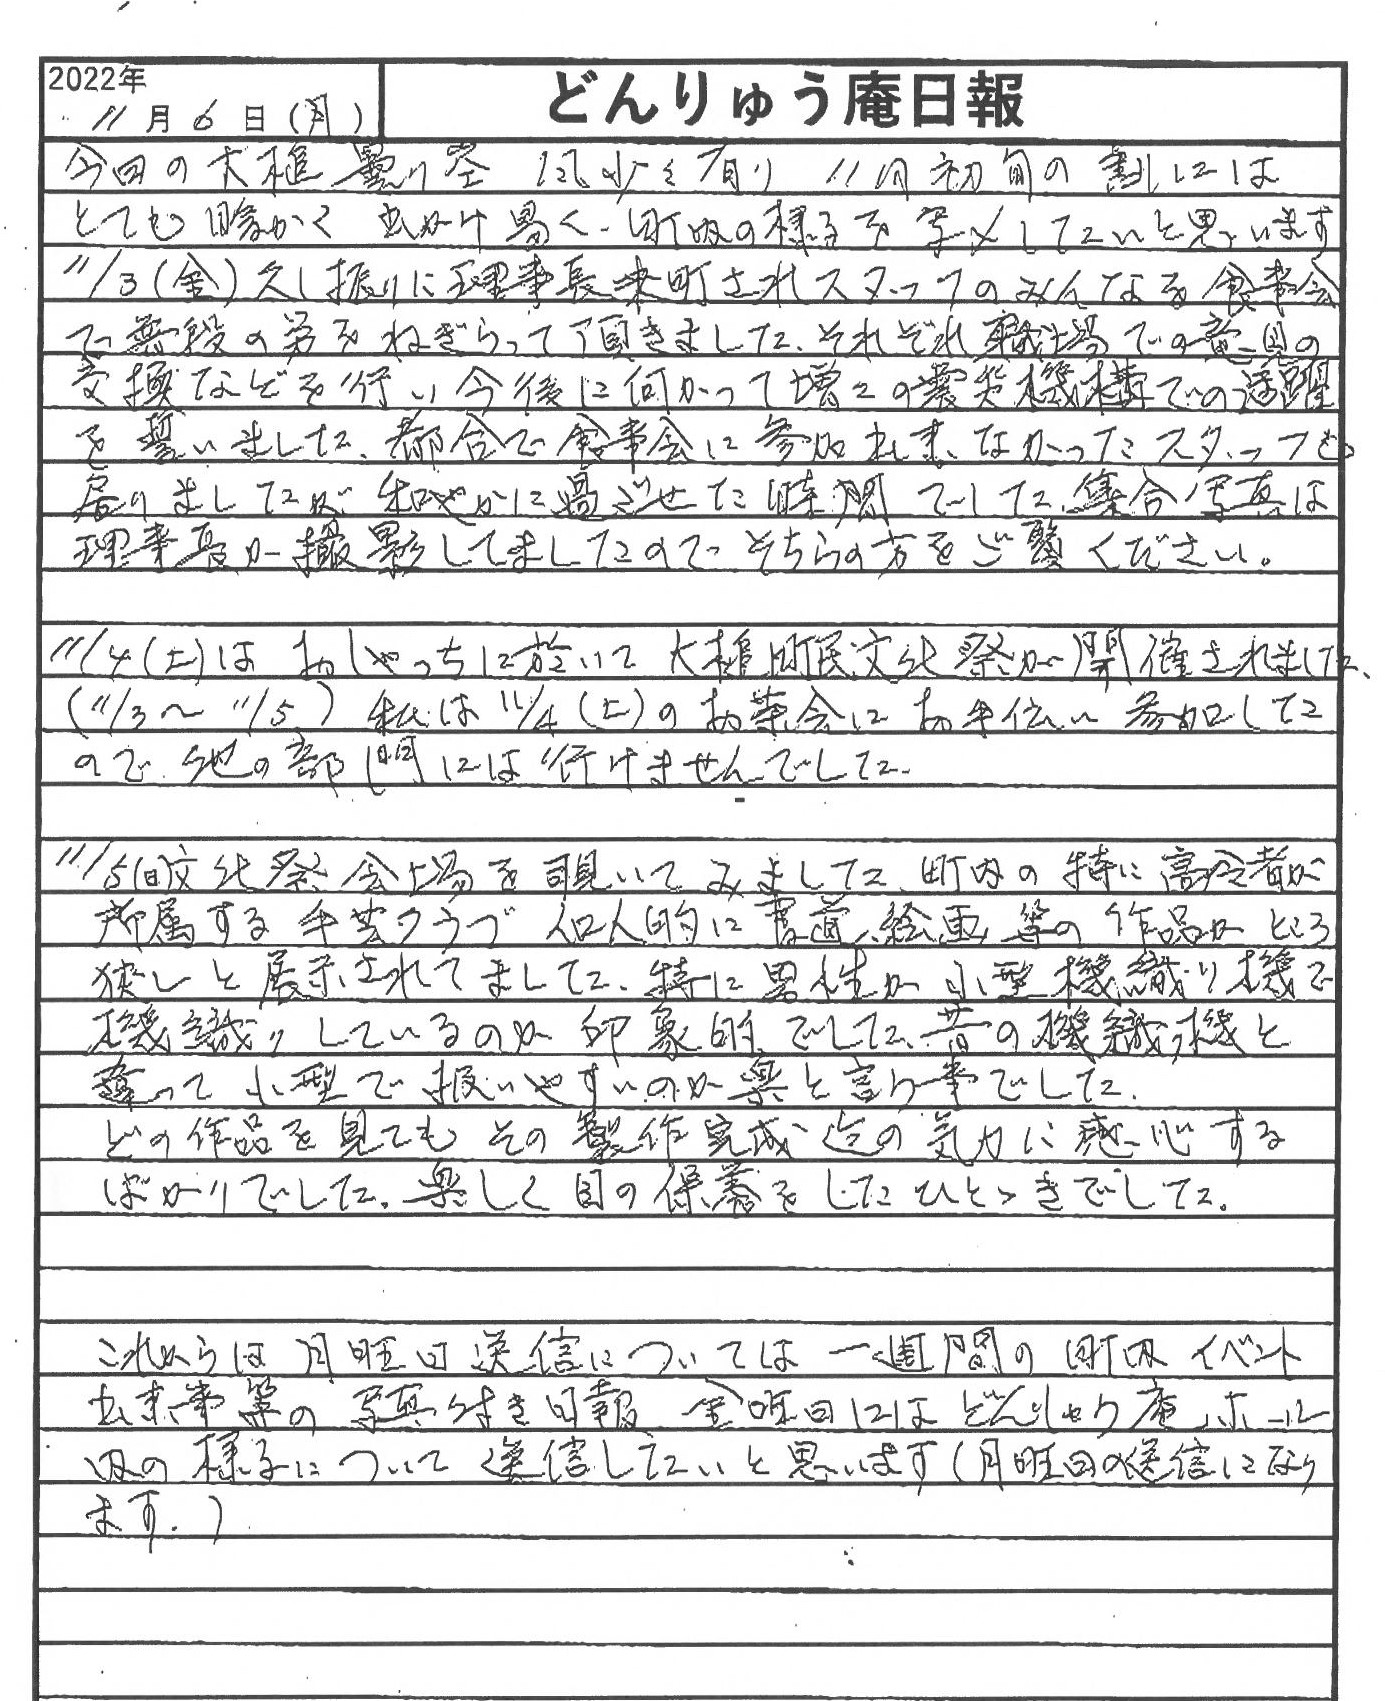 2022年
11月6日(月)
どんりゅう庵日報
今日の大槌 曇り空 風少々有り 11月初旬の割には
とても暖かく 出かけ易く 町内の様子を写メしたいと思います
11/3(金)久し振りに理事長来町されスタッフのみんなを食事会
で普段の労をねぎらって頂きました、それぞれ職場での意見の
交換などを行い今後に向かって増々の震災機構での活躍
を誓いました、都合で食事会に参加出来なかったスタッフも
居りましたが 和やかに過ごせた時間でした、集合写真は
理事長が撮影してましたので そちらの方をご覧ください。
11/4(土)は おしゃっちに於いて 大槌町民文化祭が開催されました、
(11/3〜11/5) 私は11/4(土)のお茶会にお手伝い参加した
ので 他の部門には行けませんでした.
11/5(日)文化祭会場を覗いてみました、町内の特に高令者が
所属する手芸クラブ 個人的に書道、絵画 等の作品が ところ
狭しと展示されてました、特に男性が小型機織り機で
機織りしているのが印象的でした、昔の機織り機と
違って小型で扱いやすいのが楽と言う事でした.
どの作品を見てもその製作完成迄の気力に感心する
ばかりでした. 楽しく目の保養をしたひとときでした.
これからは月曜日送信については一週間の町内イベント
出来事等の写真付き日報 金曜日にはどんりゅう庵ホール
内の様子について送信したいと思います(月曜日の送信になり
ます.)